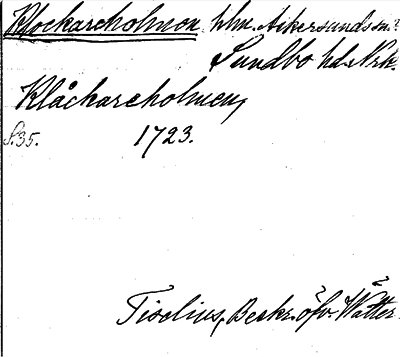 Klockareholmen hlm. Askersunds sn?
Sundbo hd. Nrk.
Klåckareholmen,
S. 35. 1723.
Tiselius, Beskr. öfv. Wätter.